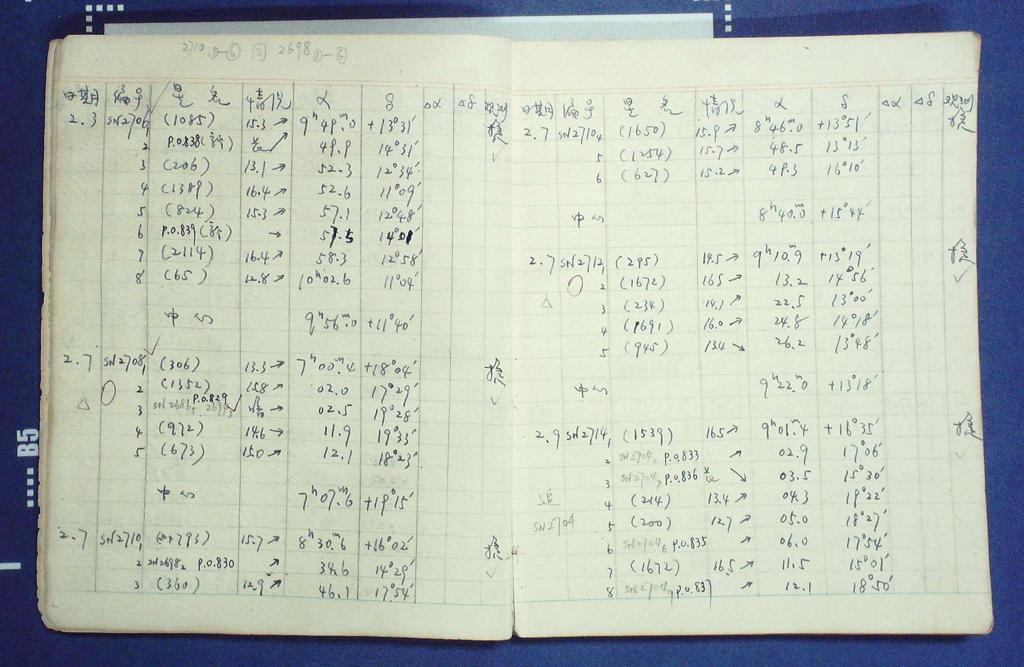 2710 ①-⑥ ② 2698 ①-⑥
日期 编号 星名 情况 α δ Δα Δδ 观测
2.3 SN2706, (1085) 15.3→ 9ʰ49ᵐ.0 +13°31′
2 P.O.838(新) 49.9 14°31′
3 (206) 13.1→ 52.3 12°34′
4 (1389) 16.4→ 52.6 11°09′
5 (824) 15.3↗ 57.1 12°48′
6 P.O.839(新) → 57.5 14°01′
7 (2114) 16.4→ 58.3 12°58′
8 (65) 12.8↗ 10ʰ02.6 11°04′
中心 9ʰ56ᵐ.0 +11°40′
2.7 SN2708₁ (306) 13.3→ 7ʰ00ᵐ.4 +18°04′
2 (1352) 15.8→ 02.0 17°29′
△ 3 P.O.829 → 02.5 19°28′
4 (972) 14.6→ 11.9 19°33′
5 (673) 15.0↗ 12.1 18°23′
中心 7ʰ07ᵐ.6 +19°15′
2.7 SN2710₁ 15.7↗ 8ʰ30ᵐ.6 +16°02′
2 SN2698₂ P.O.830 ↗ 34.6 14°29′
3 (360) 12.9↗ 46.1 17°54′
日期 编号 星名 情况 α δ Δα Δδ 观测
2.7 SN2710₄ (1650) 15.9↗ 8ʰ46ᵐ.0 +13°51′
5 (1254) 15.7→ 48.5 13°13′
6 (627) 15.2↗ 49.3 16°10′
中心 8ʰ40ᵐ.0 +15°44′
2.7 SN2712₁ (295) 14.5→ 9ʰ10ᵐ.9 +13°19′
2 (1672) 16.5→ 13.2 14°56′
△ 3 (234) 14.1↗ 22.5 13°00′
4 (1691) 16.0→ 24.8 14°18′
5 (945) 13.4↘ 26.2 13°48′
中心 9ʰ22ᵐ.0 +13°18′
2.9 SN2714₁ (1539) 16.5→ 9ʰ01ᵐ.4 +16°35′
2 SN2704₂ P.O.833 → 02.9 17°06′
3 SN2704 P.O.836 ↘ 03.5 15°30′
追 4 (214) 13.4↗ 04.3 19°22′
SN2704 5 (200) 12.7↗ 05.0 18°27′
6 SN2704₆ P.O.835 ↗ 06.0 17°54′
7 (1672) 16.5↗ 11.5 15°01′
8 SN2704 P.O.837 ↗ 12.1 18°50′
B5